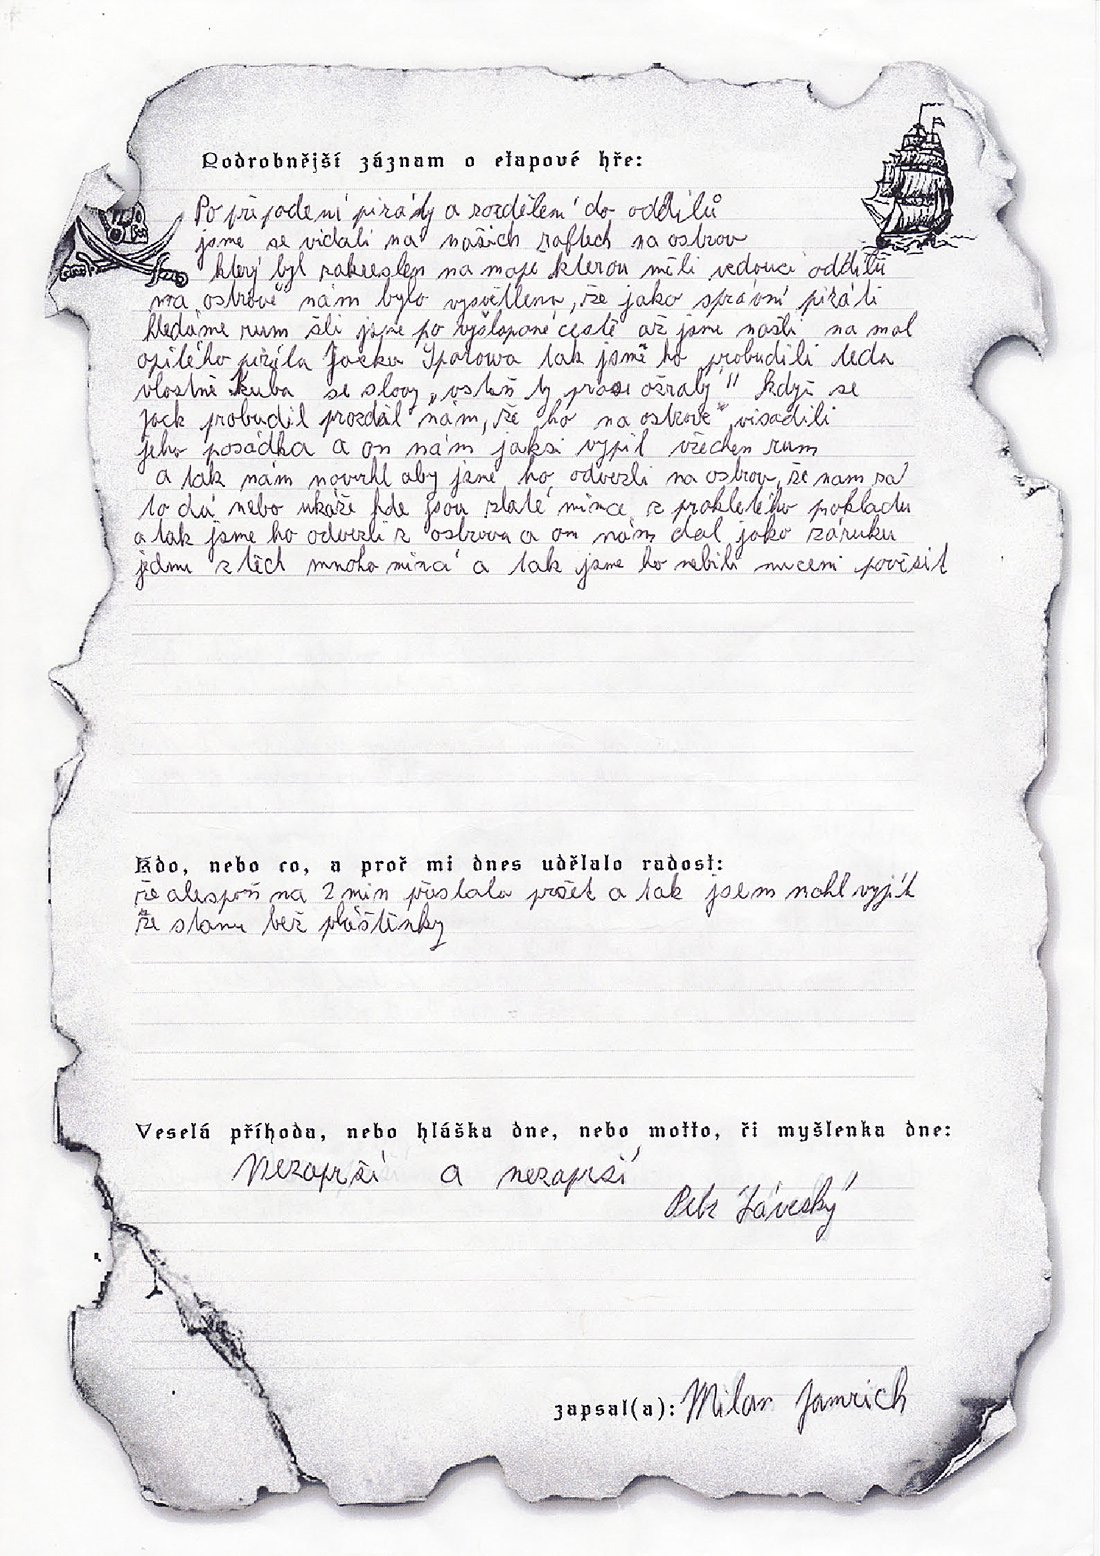 Podrobnější záznam o etapové hře:
Po přepadení piráty a rozdělení do oddílů
jsme se vidali na našich raftech na ostrov
který byl zakreslen na mapě kterou měli vedoucí oddílů
na ostrově nám bylo vysvětleno, že jako správní piráti
hledáme rum šli jsme po vyšlapané cestě až jsme našli na mol
opilého piráta Jacka Sparowa tak jsme ho probudili teda
vlastně Kuba se slovy „vstaň ty prase ožralý" když se
jack probudil prozdál nám, že ho na ostrově visadili
jeho posádka a on nám jaksi vypil všechen rum
a tak nám navrhl aby jsme ho odvezli na ostrov, že nam za
to dá nebo ukáže kde jsou zlaté mince z prokletého pokladu
a tak jsme ho odvezli z ostrova a on nám dal jako záruku
jednu z těch mnoha mincí a tak jsme ho nebili nuceni pověsit
Kdo, nebo co, a proč mi dnes udělalo radost:
že alespoň na 2 min přestalo pršet a tak jsem mohl vyjít
ze stanu bež pláštěnky
Veselá příhoda, nebo hláška dne, nebo motto, či myšlenka dne:
Nezaprší a nezaprší
Petr
zapsal(a): Milan Jamrich